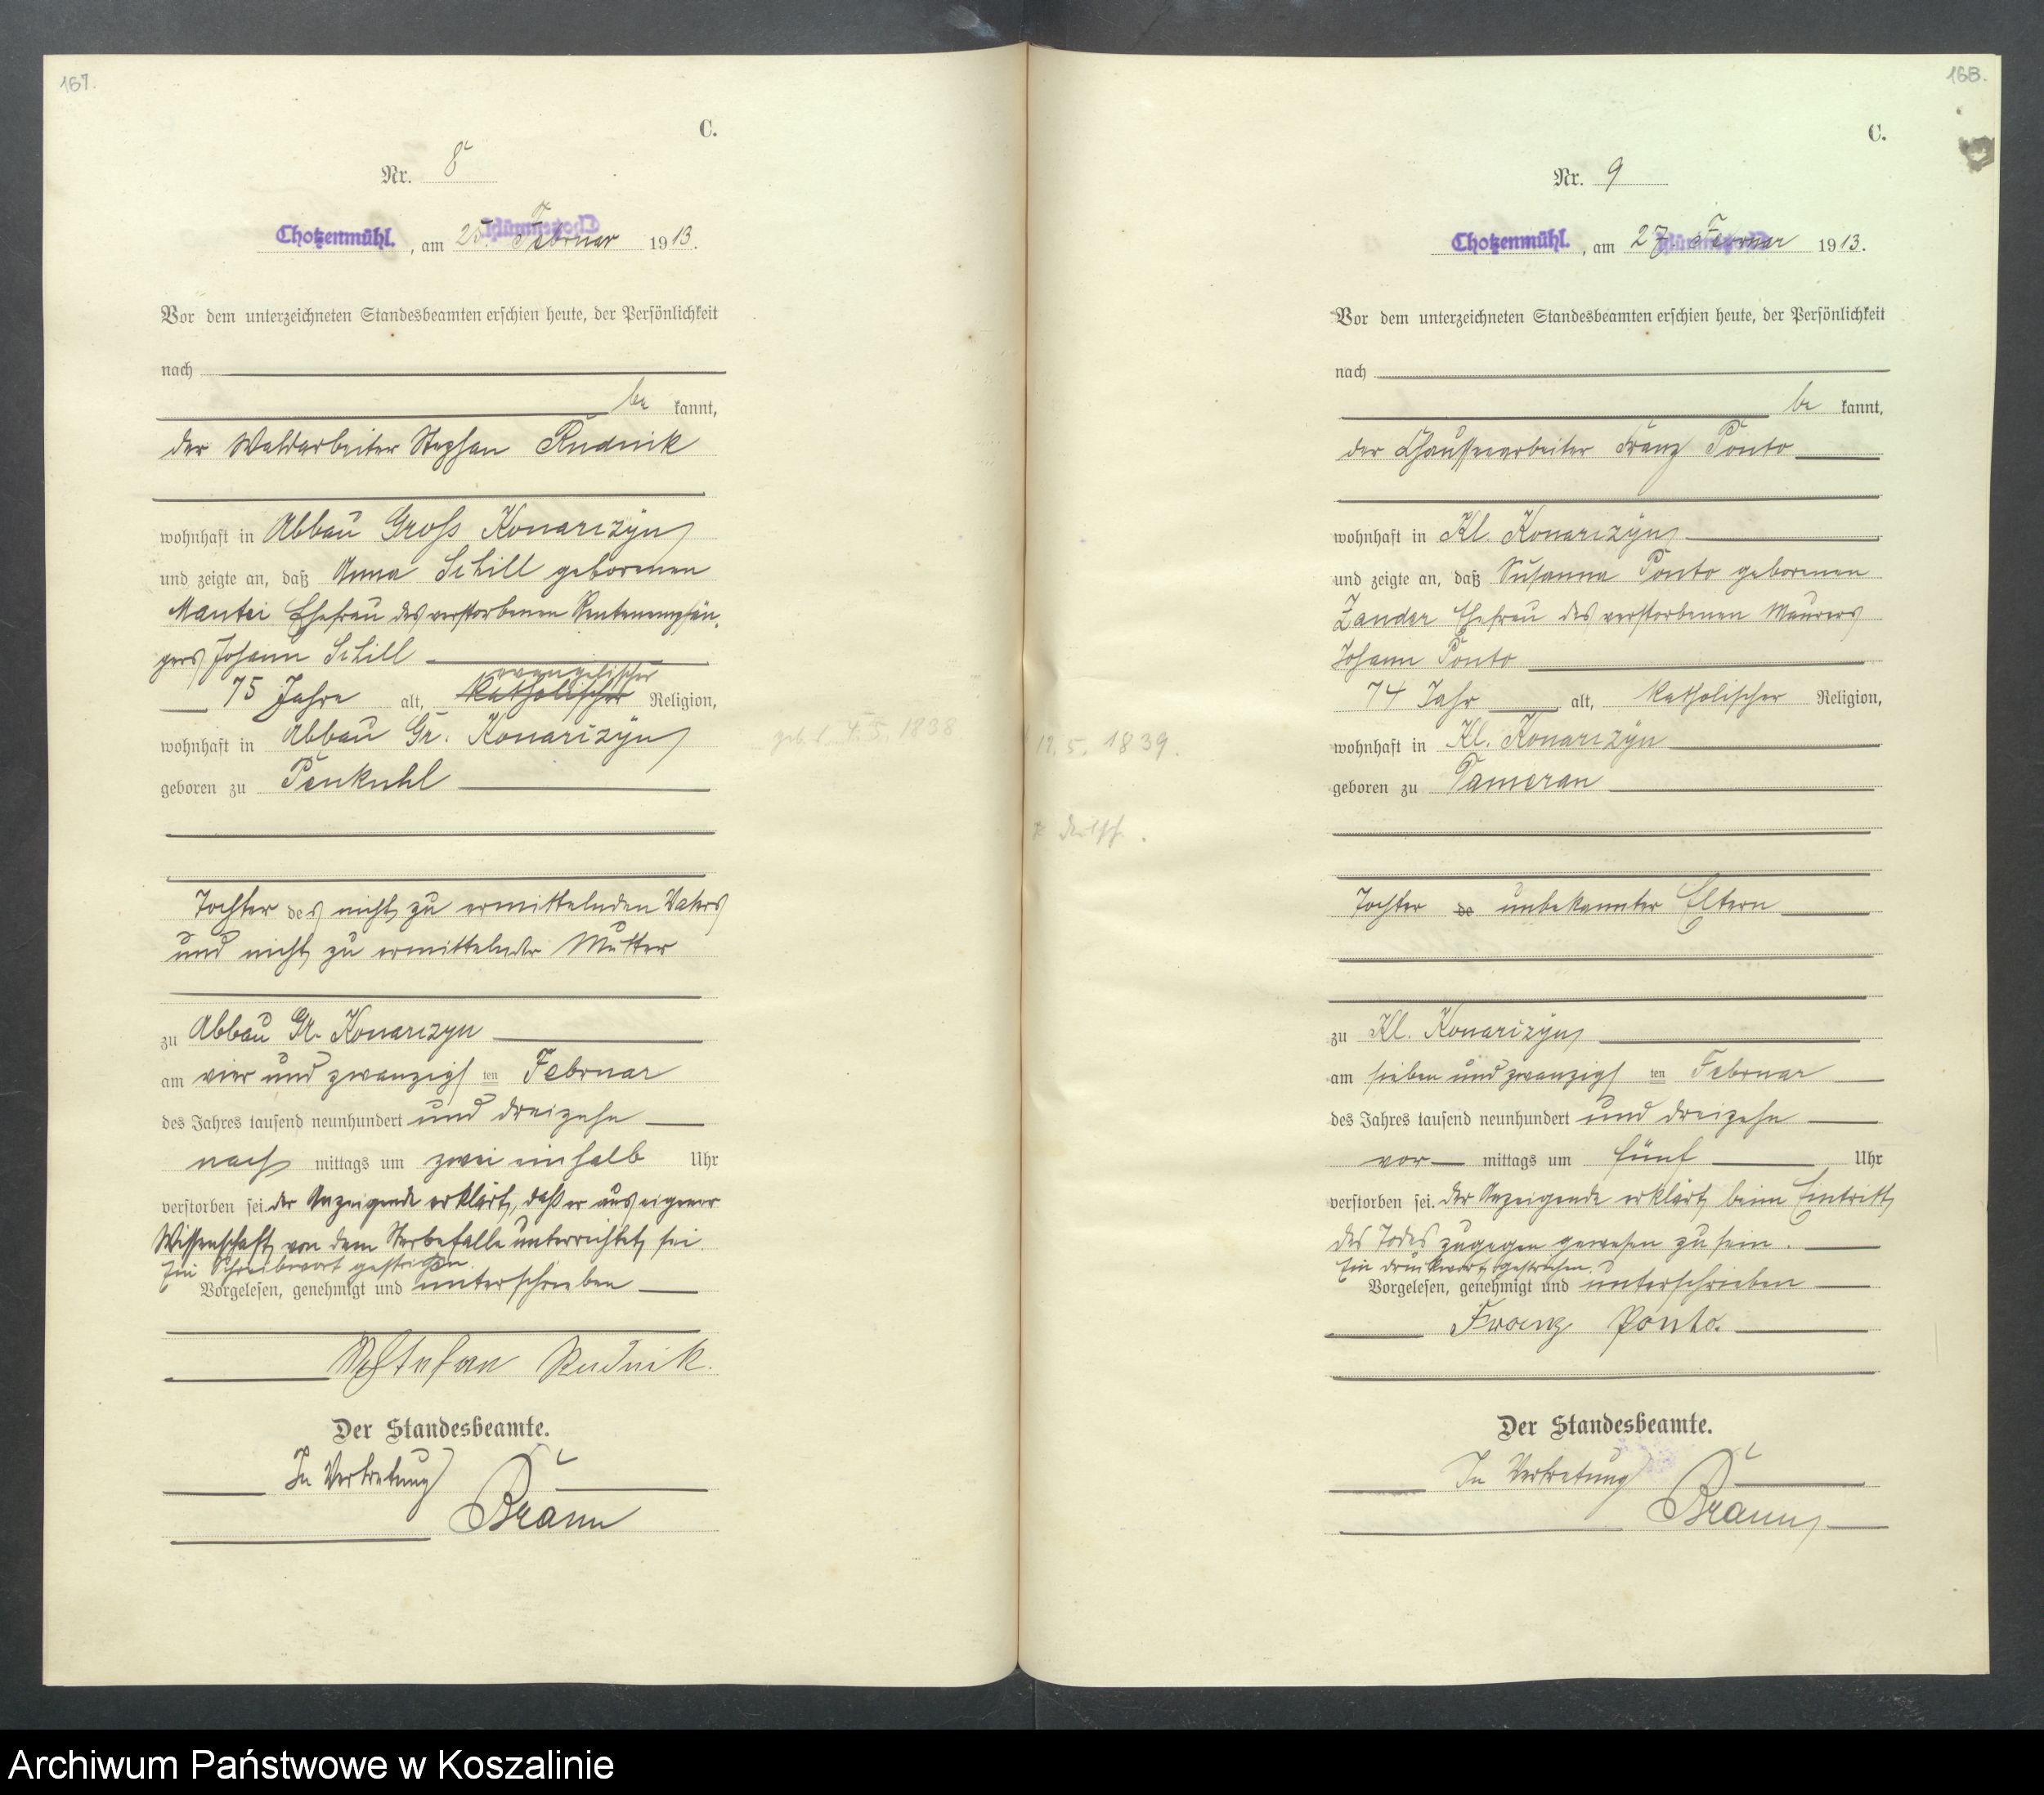 167.
C.
Nr. 8
Chotzenmühl. , am 25. Februar 1913.
Vor dem unterzeichneten Standesbeamten erschien heute, der Persönlichkeit
nach
be kannt,
der Waldarbeiter Stephan Rudnik
wohnhaft in Abbau Groß Konarczyn
und zeigte an, daß Anna Schill geborenen
Mantei Ehefrau des verstorbenen Rentenempfän-
gers Johann Schill
evangelischer
75 Jahre alt, katholischer Religion,
wohnhaft in Abbau Gr. Konarczyn
geboren zu Penkuhl
Tochter des nicht zu ermittelnden Vaters
und nicht zu ermittelnder Mutter
zu Abbau Gr. Konarczyn
am vier und zwanzigsten Februar
des Jahres tausend neunhundert und dreizehn
nach mittags um zwei einhalb Uhr
verstorben sei. der Anzeigende erklärt, daß er aus eigener
Wissenschaft von dem Sterbefalle unterrichtet sei.
Ein Schreibwort gestrichen.
Vorgelesen, genehmigt und unterschrieben
Stefan Rudnik.
Der Standesbeamte.
In Vertretung
Braun
geb. 4.5.1838
168.
C.
Nr. 9
Chotzenmühl. , am 27 Februar 1913.
Vor dem unterzeichneten Standesbeamten erschien heute, der Persönlichkeit
nach
be kannt,
der Chausseearbeiter Franz Ponto
wohnhaft in Kl. Konarczyn
und zeigte an, daß Susanna Ponto geborenen
Zander Ehefrau des verstorbenen Maurers
Johann Ponto
74 Jahr alt, katholischer Religion,
wohnhaft in Kl. Konarczyn
geboren zu Dameran
Tochter de unbekannter Eltern
zu Kl. Konarczyn
am sieben und zwanzigsten Februar
des Jahres tausend neunhundert und dreizehn
vor mittags um fünf Uhr
verstorben sei. Der Anzeigende erklärt beim Eintritt
des Todes zugegen gewesen zu sein.
Ein Druckwort gestrichen.
Vorgelesen, genehmigt und unterschrieben
Franz Ponto.
Der Standesbeamte.
In Vertretung
Braun
5. 1839.
Archiwum Państwowe w Koszalinie